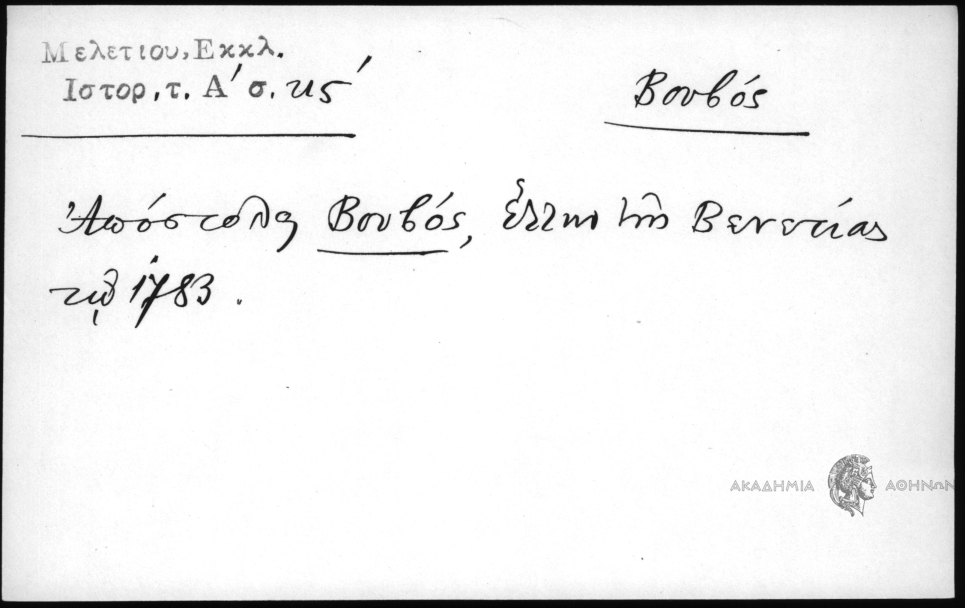 Μελετιου, Εκκλ.
Ιστορ. τ. Α΄ σ. κς΄
Βουβός
Ἀπόστολος Βουβός, ἐκ τῆς Βενετίας
τῷ 1783.
ΑΚΑΔΗΜΙΑ ΑΘΗΝΩΝ